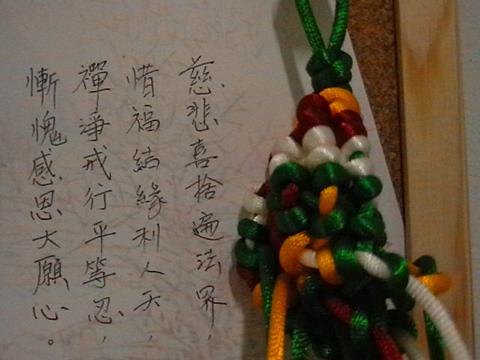 慈悲喜捨遍法界，
惜福結緣利人天，
禪淨戒行平等忍，
慚愧感恩大願心。